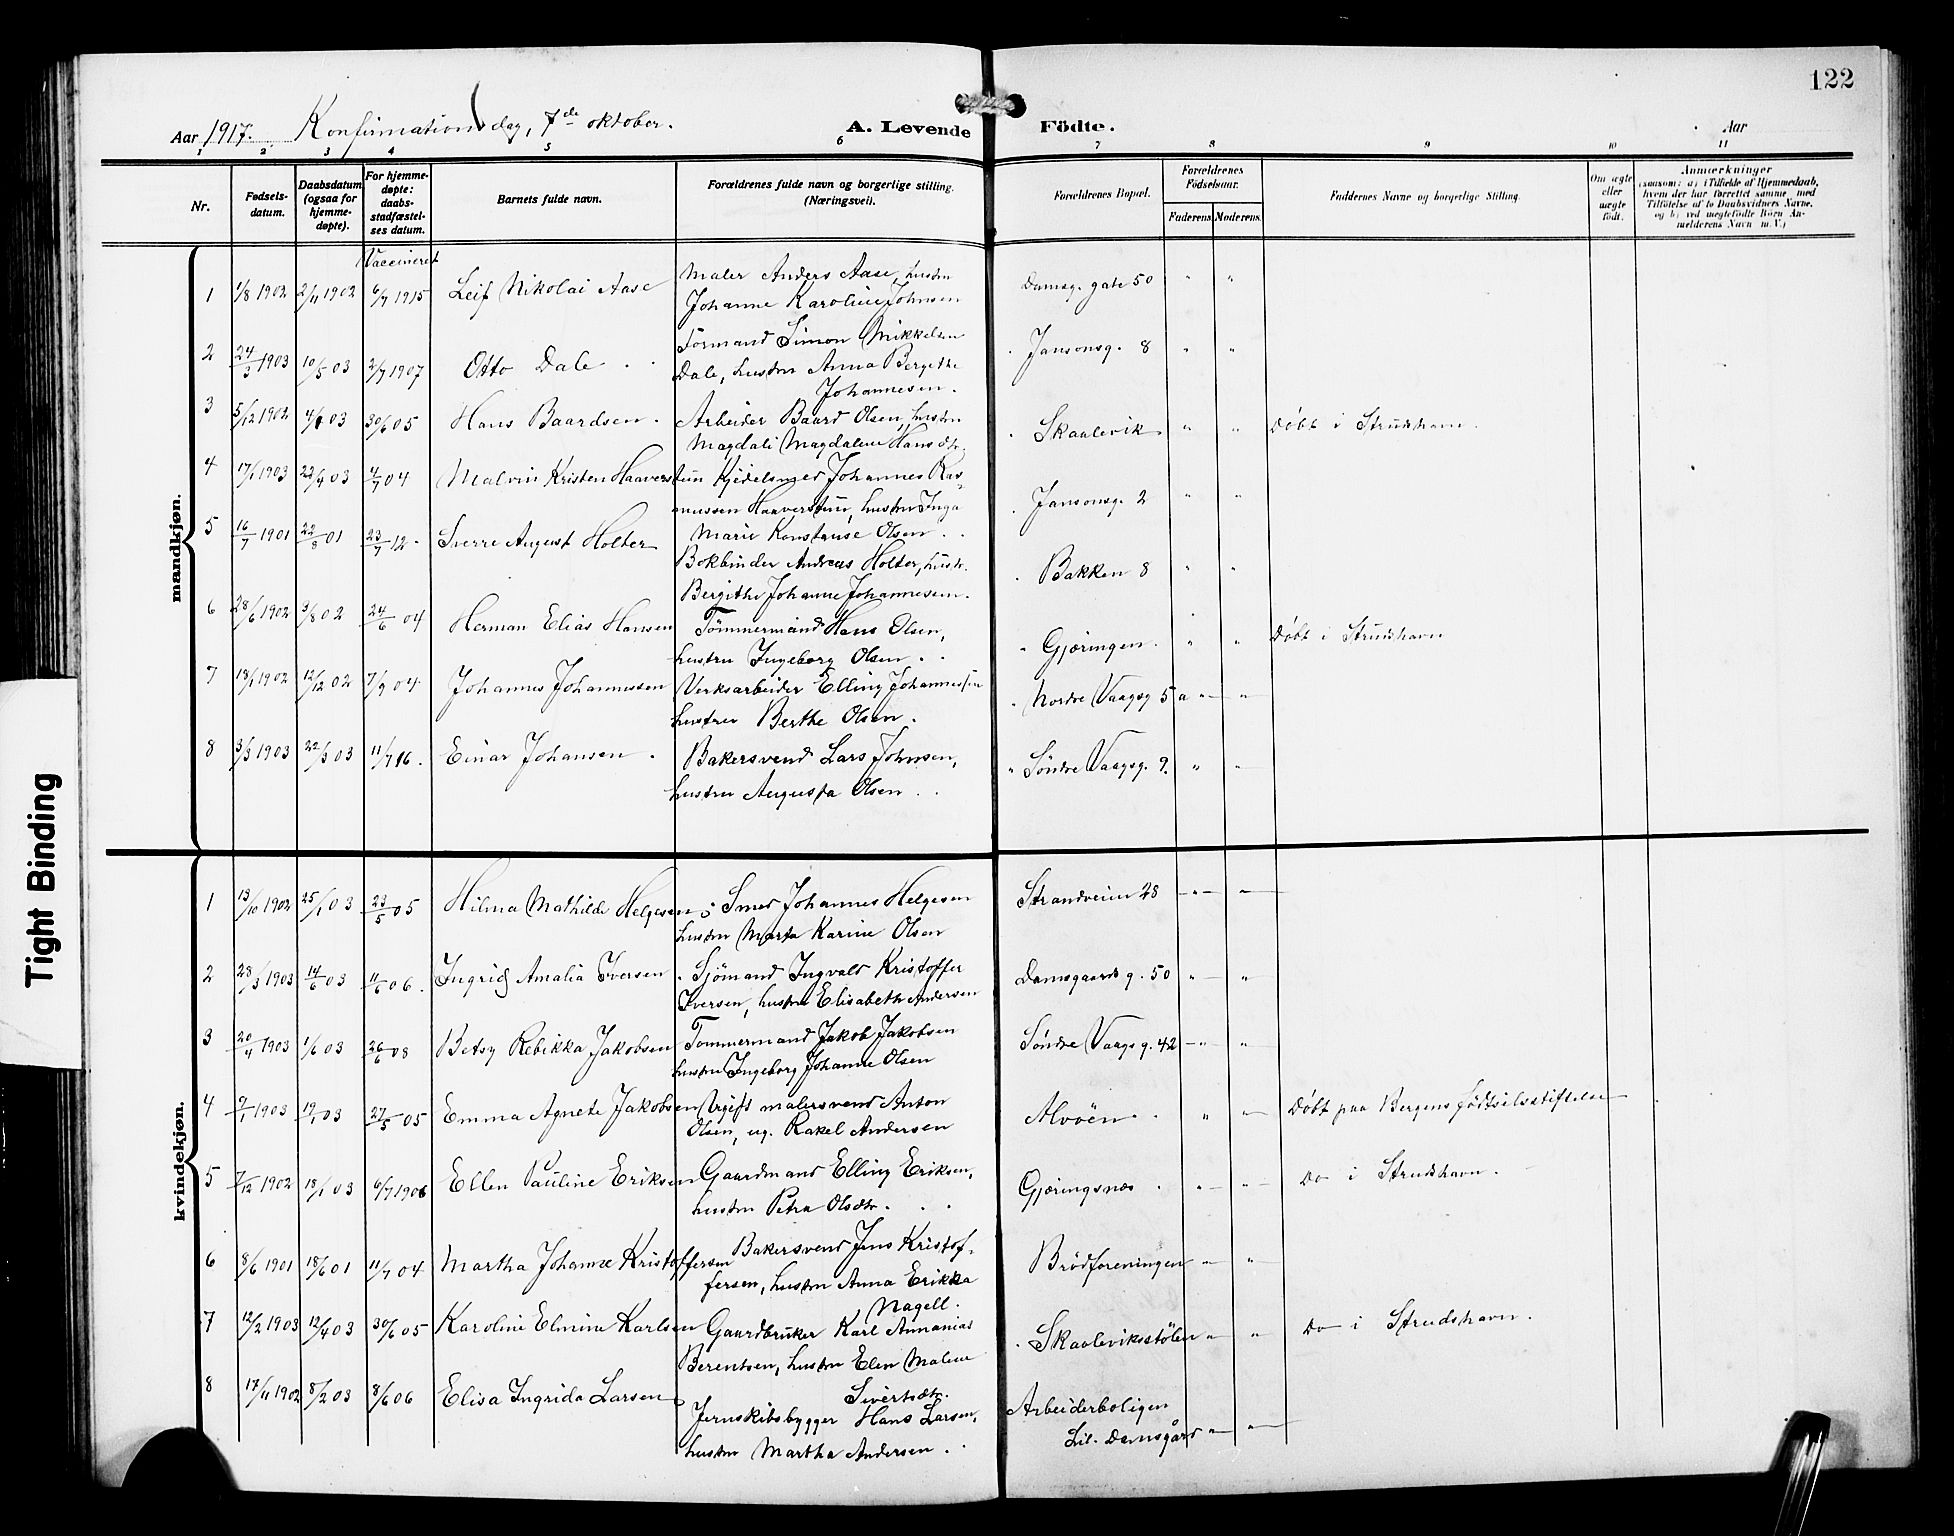 122
Aar 1917. Konfirmationsdag, 7de oktober. A. Levende Födte. Aar
1 2 3 4 5 6 7 8 9 10 11
Nr.
Fødsels-
datum.
Daabsdatum
(ogsaa for
hjemme-
døpte).
For hjemme-
døpte:
daabs-
stadfæstel-
ses datum.
Barnets fulde navn.
Forældrenes fulde navn og borgerlige stilling.
(Næringsvei).
Forældrenes Bopæl.
Forældrenes
Födselsaar.
Faderens. Moderens.
Faddernes Navne og borgerlige Stilling.
Om ægte
eller
uægte
født.
Anmærkninger
(saasom: a) i Tilfælde af Hjemmedaab,
hvem der har forrettet samme, med
Tilföielse af to Daabsvidners Navne.
og b) ved uægtefødte Börn An-
melderens Navn m. V.)
Vaccineret
mandkjøn.
1 1/8 1902 2/11 1902 6/7 1915 Leif Nikolai Aase Maler Anders Aase, hustru Damsg. gate 50 " "
Johanne Karoline Johnsen
2 24/3 1903 10/5 03 2/7 1907 Otto Dale Formand Simon Mikkelsen Jansonsg. 8 " "
Dale, hustru Anna Bergithe
Johannesen.
3 5/12 1902 03 30/6 05 Hans Baardsen. Arbeider Baard Olsen, hustru Skaalevik " " Døbt i Strudshavn.
Magdali Magdalene Hansdtr.
4 17/1 1903 23/4 03 4/7 04 Malvin Kristen Haaverstun Kjedelsmed Johannes Ras- Jansonsg. 2 " "
mussen Haaverstun, hustru Inga
Marie Konstanse Olsen.
5 16/7 1901 22/8 01 23/7 12 Sverre August Holter Bokbinder Andreas Holter, hustr. Bakken 8 " "
Bergithe Johanne Johannesen.
6 28/6 1902 3/8 02 24/6 04 Herman Elias Hansen Tömmermand Hans Olsen, Gjøringen. " " Døbt i Strudshavn
hustru Ingeborg Olsen.
7 1902 12/12 02 7/9 04 Johannes Johannessen Verksarbeider Elling Johannessen Nordre Vaagsg 5 a " "
hustru Berthe Olsen.
8 3/3 1903 22/3 03 11/7 16. Einar Johansen. Bakersvend Lars Johnsen, Söndre Vaagsg. 9. " "
hustru Augusta Olsen
kvindekjøn.
1 13/10 1902 25/1 03 23/5 05 Hilma Mathilde Helgesen Smed Johannes Helgesen Strandveien 28 " "
hustru Marta Karine Olsen
2 23/3 1903 14/6 03 11/6 06. Ingrid Amalia Iversen Sjömand Ingvald Kristoffer Damsgaards g. 50 " "
Iversen, hustru Elisabeth Andersen
3 20/4 1903 1/6 03 26/6 08 Betsy Rebikka Jakobsen Tömmermand Jakob Jakobsen Söndre Vaags g. 42 " "
hustru Ingeborg Johanne Olsen
4 9/1 1903 19/1 03 27/5 05 Emma Agnete Jakobsen Ugift malersvend Anton Alvöen " " Døbt paa Bergens födselsstiftelse
Olsen, ug. Rakel Andersen
5 7/12 1902 18/1 03 6/7 1906 Ellen Pauline Eriksen Gaardmand Elling Eriksen, Gjøringsnes " " Do i Strudshavn.
hustru Petra Olsdtr.
6 8/6 1901 18/6 01 11/7 04 Martha Johanne Kristoffersen Bakersvend Jens Kristof- Brödforeningen " "
fersen, hustru Anna Erikka
Nagell.
7 12/2 1903 12/4 03 30/6 05 Karoline Elmine Karlsen Gaardbruker Karl Annanias Skaalevikstölen " " Do i Strudshavn.
Berentsen, hustru Elen Malene
Sivertsdtr.
8 17/11 1902 8/2 03 8/6 06 Elisa Ingrida Larsen Jernskibsbygger Hans Larsen, Arbeiderboligen
hustru Martha Andersen. Lil. Damsgård " "
Tight Binding